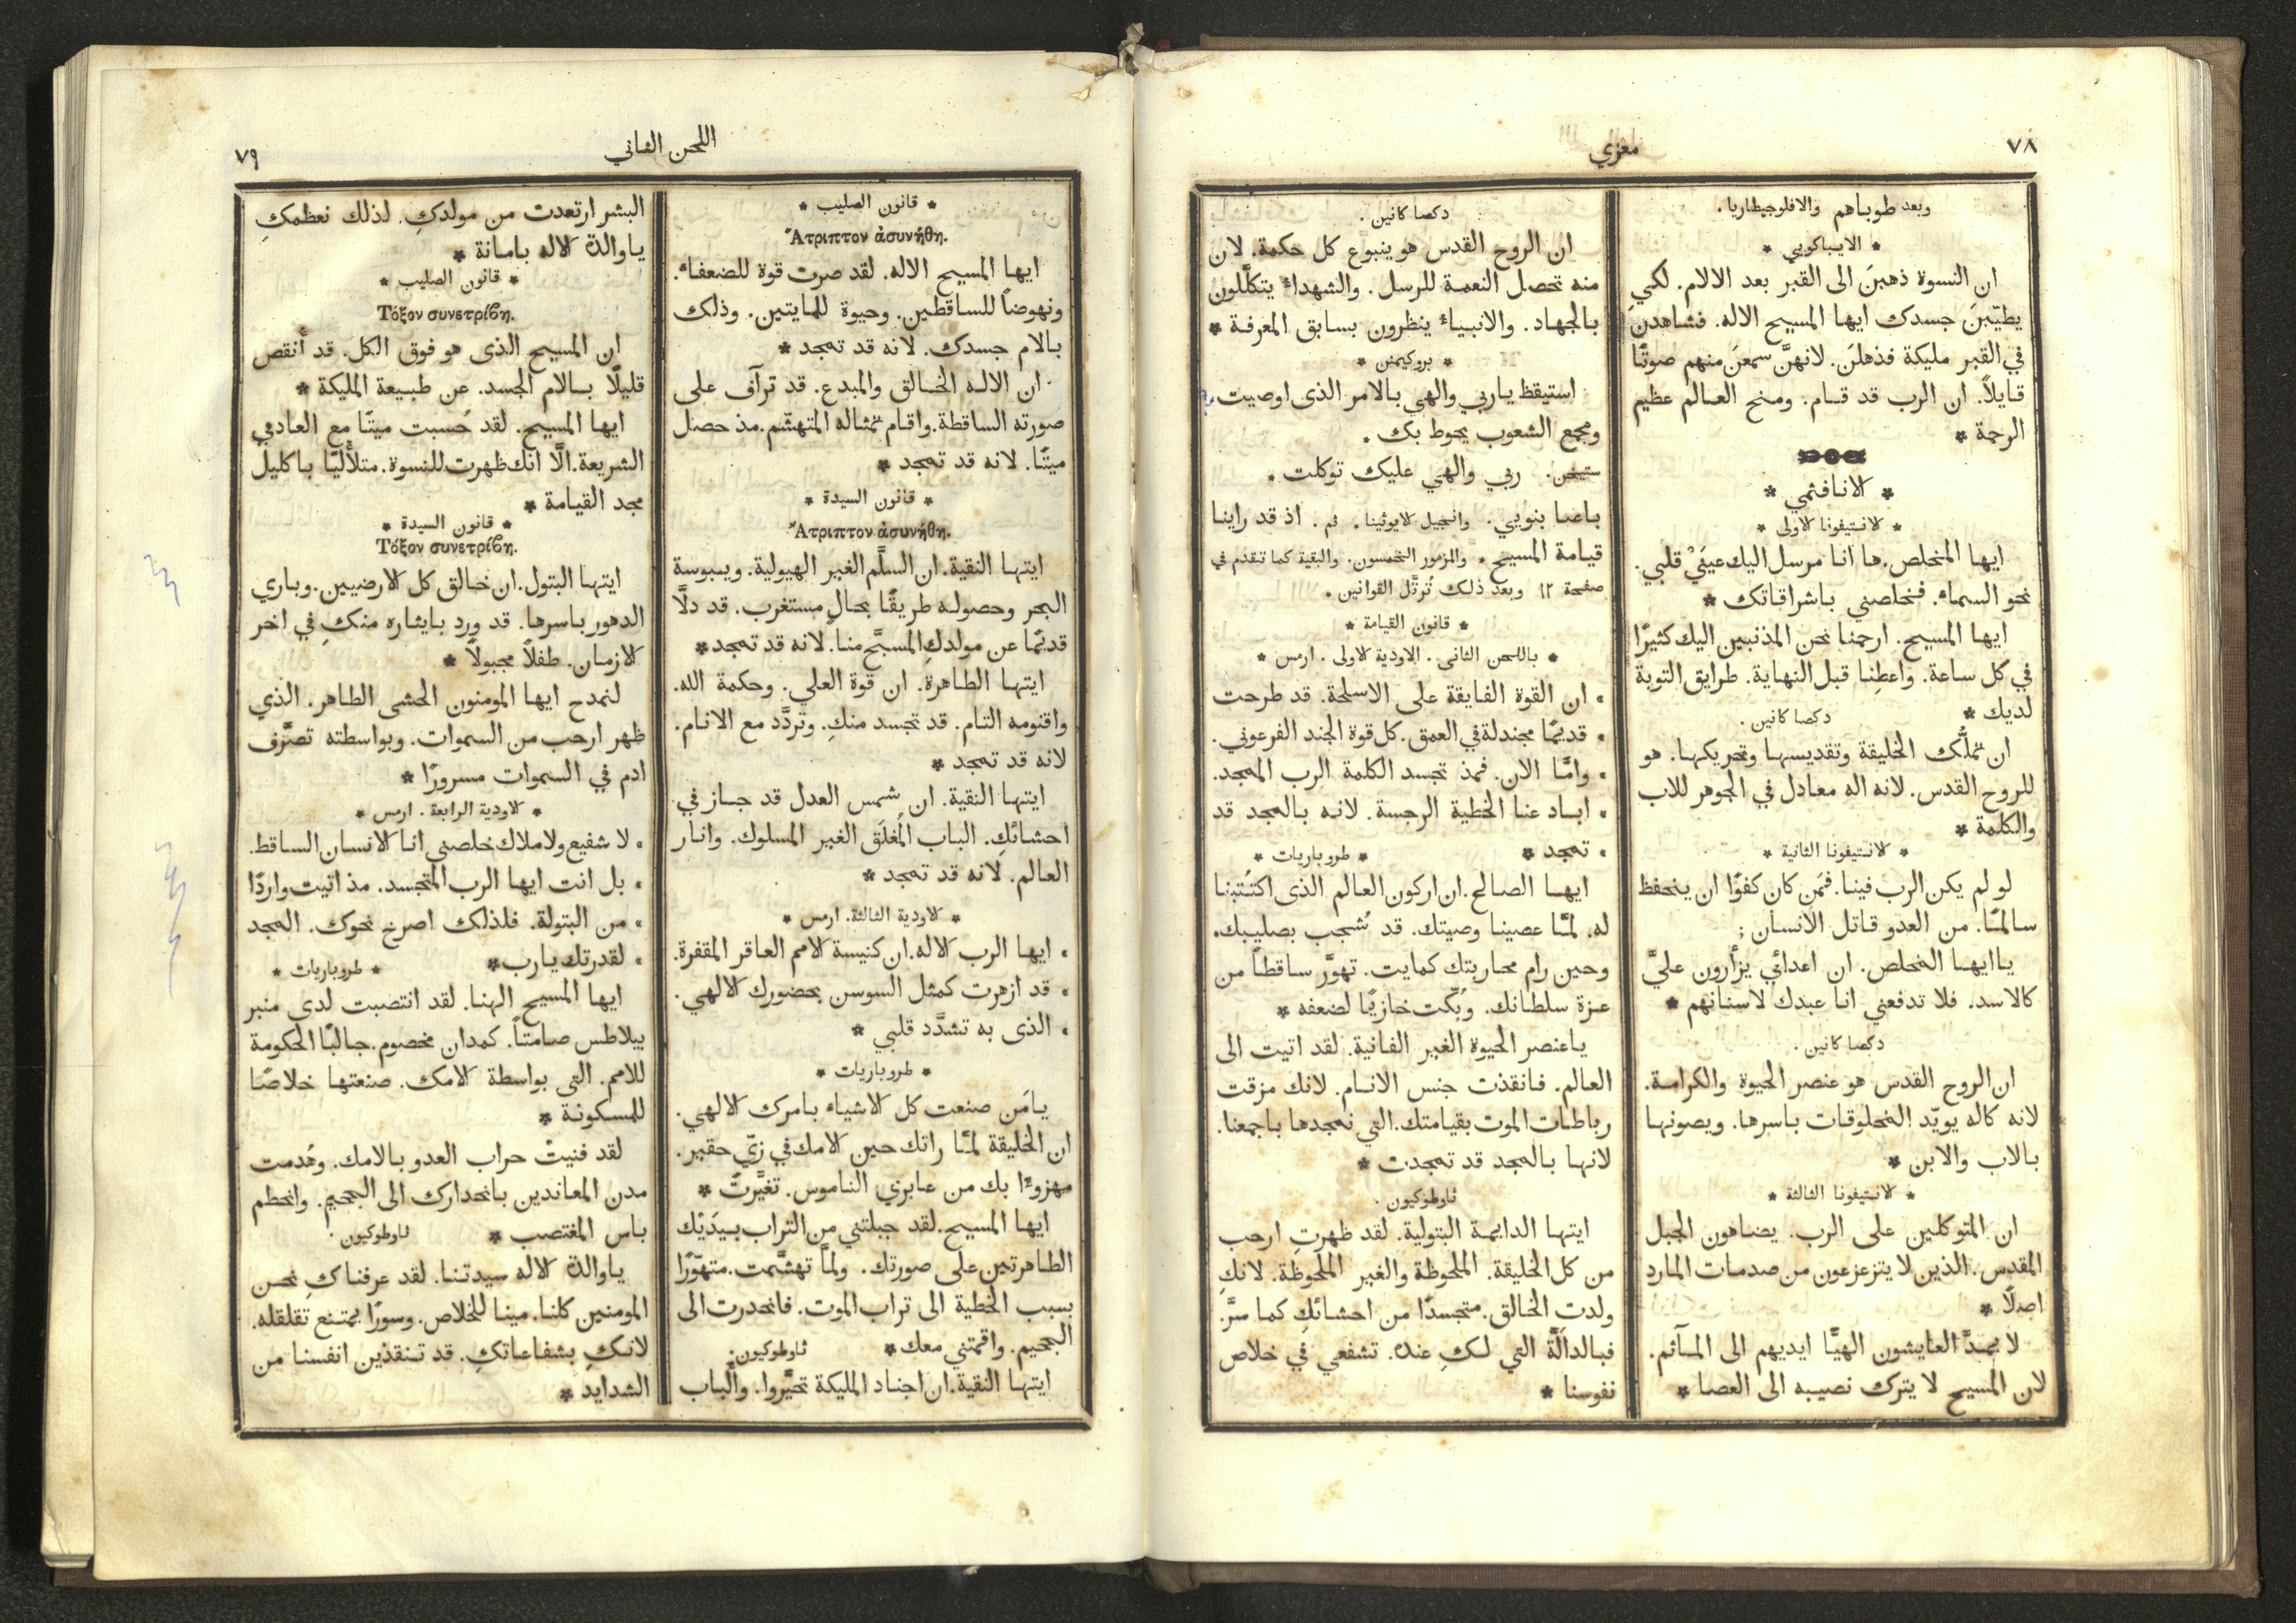 ٧٨
معزي
وبعد طوباهم والافلوجيطاريا.
* الايباكويي *
ان النسوة ذهبنَ الى القبر بعد الالام. لكي
يطيّبنَ جسدك ايها المسيح الاله. فشاهدن
في القبر مليكة فذهلنَ. لانهنَّ سمعنَ منهم صوتًا
قايلاً. ان الرب قد قام. ومنح العالم عظيم
الرحمة *
* الانافثمي *
* لانتيفونا الاولى *
ايها المخلص. ها انا مرسل اليك عينَيْ قلبي.
نحو السماء. فخلصني باشراقاتك *
ايها المسيح. ارحمنا نحن المذنبين اليك كثيرًا
في كل ساعة. واعطِنا قبل النهاية. طرايق التوبة
لديك * دكصا كانين.
ان تملُّك الخليقة وتقديسها وتحريكها. هو
للروح القدس. لانه اله معادل في الجوهر للاب
والكلمة *
* لانتيفونا الثانية *
لو لم يكن الرب فينا. فمَن كان كفوًا ان ينحفظ
سالمًا. من العدو قاتل الانسان;
يا ايها المخلص. ان اعدائي يزأرون عليَّ
كالاسد. فلا تدفعني انا عبدك لاسنانهم *
دكصا كانين.
ان الروح القدس هو عنصر الحيوة والكرامة.
لانه كاله يويّد المخلوقات باسرها. ويصونها
بالاب والابن *
* لانتيفونا الثالثة *
ان المتوكلين على الرب. يضاهون الجبل
المقدس. الذين لا يتزعزعون من صدمات المارد
اصلًا *
لا يمدَّ العايشون الهيًّا ايديهم الى المآثم.
لان المسيح لا يترك نصيبه الى العصا *
دكصا كانين.
ان الروح القدس هو ينبوع كل حكمة. لان
منه تحصل النعمة للرسل. والشهداء يتكلَّلون
بالجهاد. والانبياء ينظرون بسابق المعرفة *
* بروكيمنن *
استيقظ يا ربي والهي بالامر الذى اوصيت.
ومجمع الشعوب يحوط بك.
ستيخن. ربي والهي عليك توكلت.
باصا بنويي. وانجيل لايوثينا. ثم. اذ قد راينا
قيامة المسيح * والمزمور الخمسون. والبقية كما تقدم في
صفحة ١٢ وبعد ذلك تُرتَّل القوانين.
* قانون القيامة *
* باللحن الثانى. الاودية لاولى. ارمس *
ان القوة الفايقة على الاسلحة. قد طرحت
قديمًا مجندلة في العمق. كل قوة الجند الفرعوني.
وامَّا الان. فمذ تجسد الكلمة الرب الممجد.
اباد عنا الخطية الرجسة. لانه بالمجد قد
تمجد * * طروباريات *
ايها الصالح. ان اركون العالم الذى اكتُتبنا
له. لمَّا عصينا وصيتك. قد شُجب بصليبك.
وحين رام محاربتك كمايت. تهوَّر ساقطاً من
عزة سلطانك. وبُكّت خازيًا لضعفه *
يا عنصر الحيوة الغير الفانية. لقد اتيت الى
العالم. فانقذت جنس الانام. لانك مزقت
رباطات الموت بقيامتك. التي نمجدها باجمعنا.
لانها بالمجد قد تمجدت *
ثاوطوكيون.
ايتها الدايمة البتولية. لقد ظهرتِ ارحب
من كل الخليقة. الملحوظة والغير الملحوظة. لانكِ
ولدت الخالق. متجسدًا من احشائكِ كما سرَّ.
فبالدالَّة التي لكِ عنده. تشفعي في خلاص
نفوسنا *
اللحن الثاني
٧٩
* قانون الصليب *
Ἄτριπτον ἀσυνήθη.
ايها المسيح الاله. لقد صرت قوة للضعفاء.
ونهوضاً للساقطين. وحيوة للمايتين. وذلك
بالام جسدك. لانه قد تمجد *
ان الاله الخالق والمبدع. قد ترآف على
صورته الساقطة. واقام تمثاله المتهشّم. مذ حصل
ميتًا. لانه قد تمجد *
* قانون السيدة *
Ἄτριπτον ἀσυνήθη.
ايتها النقية. ان السلَّم الغير الهيولية. ويبوسة
البحر وحصوله طريقًا بحالٍ مستغرب. قد دلَّا
قديمًا عن مولدكِ المسبَّح منا. لانه قد تمجد *
ايتها الطاهرة. ان قوة العلي. وحكمة الله.
واقنومه التام. قد تجسد منكِ. وتردَّد مع الانام.
لانه قد تمجد *
ايتها النقية. ان شمس العدل قد جاز في
احشائكِ. الباب المُغلَق الغير المسلوك. وانار
العالم. لانه قد تمجد *
* لاودية الثالثة. ارمس *
ايها الرب الاله. ان كنيسة الامم العاقر المقفرة.
قد ازهرت كمثل السوسن بحضورك الالهي.
الذى به تشدَّد قلبي *
* طروباريات *
يا مَن صنعت كل الاشياء بامرك الالهي.
ان الخليقة لمَّا راتك حين الامك في زيّ حقير.
مهزوءًا بك من عابري الناموس. تغيَّرتْ *
ايها المسيح. لقد جبلتني من التراب بيدَيْك
الطاهرتين على صورتك. ولمَّا تهشَّمت. متهوّرًا
بسبب الخطية الى تراب الموت. فانحدرت الى
الجحيم. واقمتني معك * ثاوطوكيون.
ايتها النقية. ان اجناد المليكة تحيَّروا. والباب
البشر ارتعدت من مولدكِ. لذلك نعظمكِ
يا والدة الاله بامانة *
* قانون الصليب *
Τόξον συνετρίβη.
ان المسيح الذى هو فوق الكل. قد أُنقص
قليلًا بالام الجسد. عن طبيعة المليكة *
ايها المسيح. لقد حُسبت ميتًا مع العادمي
الشريعة. الَّا انك ظهرت للنسوة. متلأليًا باكليل
مجد القيامة *
* قانون السيدة *
Τόξον συνετρίβη.
ايتها البتول. ان خالق كل الارضيين. وباري
الدهور باسرها. قد ورد بايثاره منكِ في اخر
الازمان. طفلاً مجبولاً *
لنمدح ايها المومنون الحشى الطاهر. الذي
ظهر ارحب من السموات. وبواسطته تصرَّف
ادم في السموات مسرورًا *
* لاودية الرابعة. ارمس *
لا شفيع ولا ملاك خلصني انا الانسان الساقط.
بل انت ايها الرب المتجسد. مذ اتيت واردًا
من البتولة. فلذلك اصرخ نحوك. المجد
لقدرتك يا رب * * طروباريات *
ايها المسيح الهنا. لقد انتصبت لدى منبر
بيلاطس صامتاً. كمدان مخصوم. جالبًا الحكومة
للامم. التي بواسطة الامك. صنعتها خلاصًا
للمسكونة *
لقد فنيتْ حراب العدو بالامك. وهُدمت
مدن المعاندين بانحدارك الى الجحيم. وانحطم
باس المغتصب * ثاوطوكيون.
يا والدة الاله سيدتنا. لقد عرفناكِ نحن
المومنين كلنا. مينا للخلاص. وسورًا يمتنع تقلقله.
لانكِ بشفاعاتكِ. قد تنقذين انفسنا من
الشدايد *